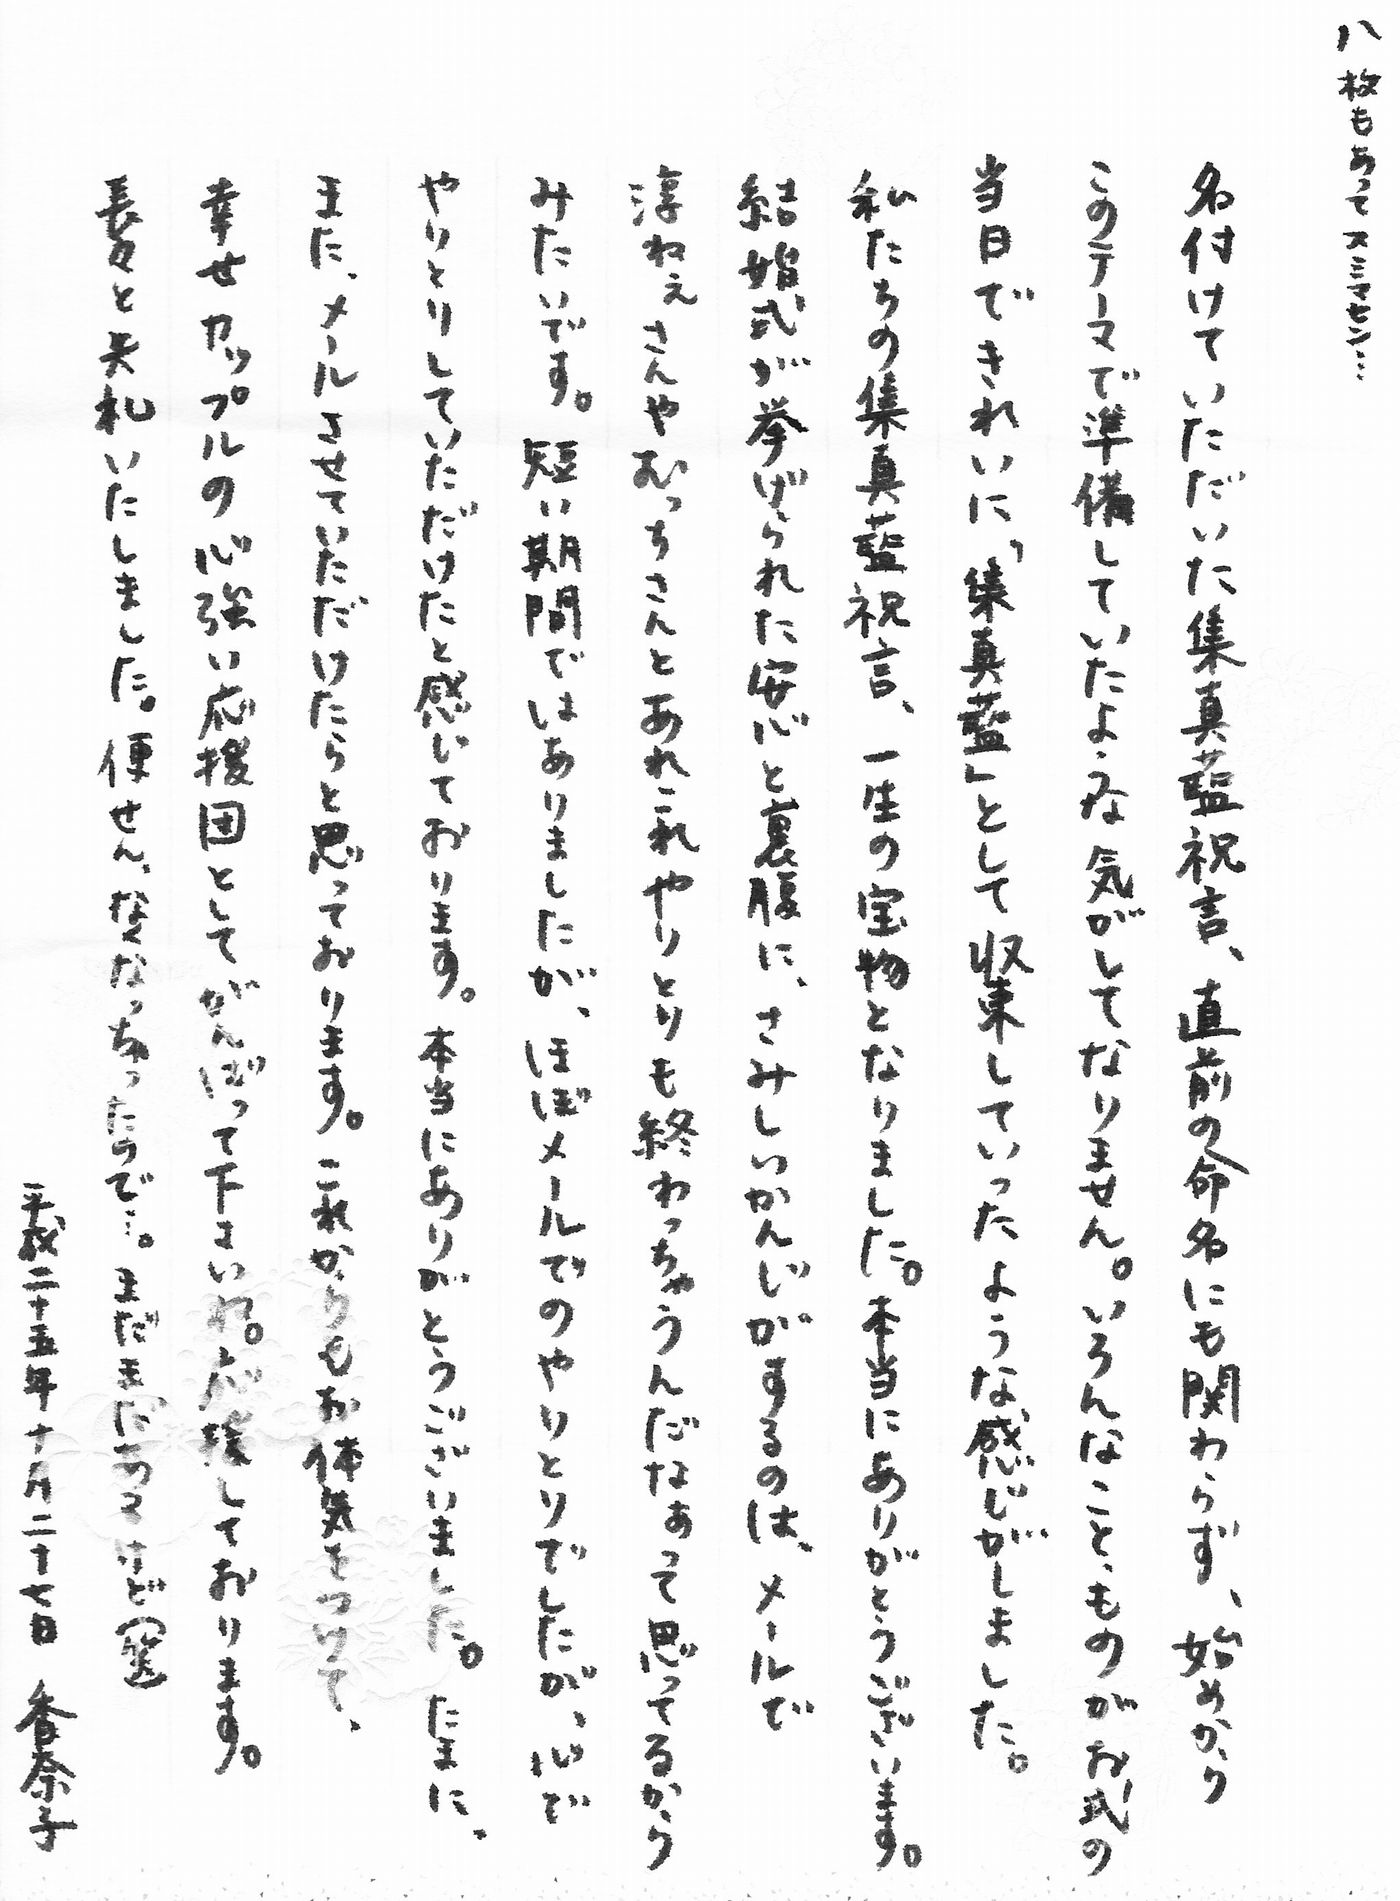 八枚もあってスミマセン…
名付けていただいた集真藍祝言、直前の命名にも関わらず、始めから
このテーマで準備していたような気がしてなりません。いろんなこと、ものがお式の
当日できれいに、「集真藍」として収束していったような感じがしました。
私たちの集真藍祝言、一生の宝物となりました。本当にありがとうございます。
結婚式が挙げられた安心と裏腹に、さみしいかんじがするのは、メールで
淳ねぇさんやむっちさんとあれこれやりとりも終わっちゃうんだなぁって思ってるから
みたいです。短い期間ではありましたが、ほぼメールでのやりとりでしたが、心で
やりとりしていただけたと感じております。本当にありがとうございました。たまに、
また、メールさせていただけたらと思っております。これからもお体気をつけて、
幸せカップルの心強い応援団としてがんばって下さいね。応援しております。
長々と失礼いたしました。便せん、なくなっちゃったので…。まだまだあるけど
平成二十五年十月二十七日 香奈子